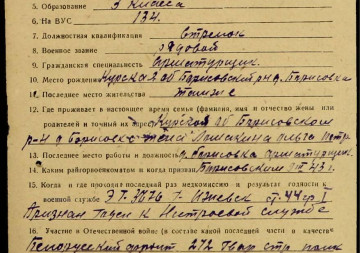 5. Образование 3 класса
6. На ВУС 134.
7. Должностная квалификация Стрелок
8. Военное звание рядовой
9. Гражданская специальность Арматурщик
10. Место рождения Курская об Борисовский р-н д. Борисовка
11. Последнее место жительства там же
12. Где проживает в настоящее время семья (фамилия, имя и отчество жены или
родителей и точный их Курская об Борисовском
р-н д Борисовс жена Ольга Петр
13. Последнее место работы и должность д. Борисовка арматурщик.
14. Каким райгорвоенкоматом и когда призван Борисовским 43 г.
15. Когда и где проходил последний раз медкомиссию и результат годности к
военной службе ЭГ. 3076 г. Ижевск ст. 44 гр I
Признан годен к нестроевой службе
16. Участие в Отечественной войне (в составе какой последней части и качестве
Белорусский фронт 272 гвар. стр. полк